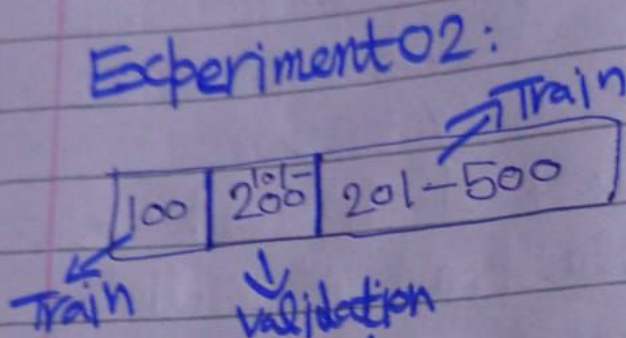 Experiment02:
Train
100 101-200 201-500
Train validation